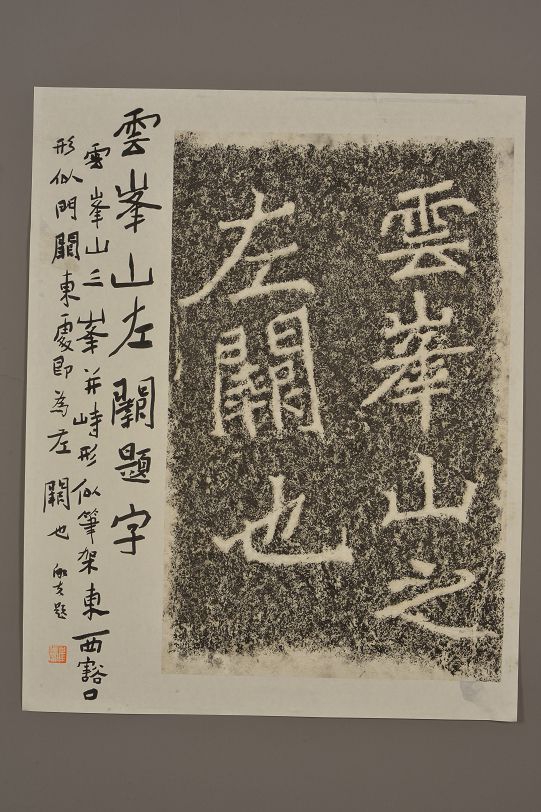 雲峯山之
左闕也
雲峯山左闕題字
雲峯山三峯并峙形似筆架東西豁口
形似門闕東處即為左闕也